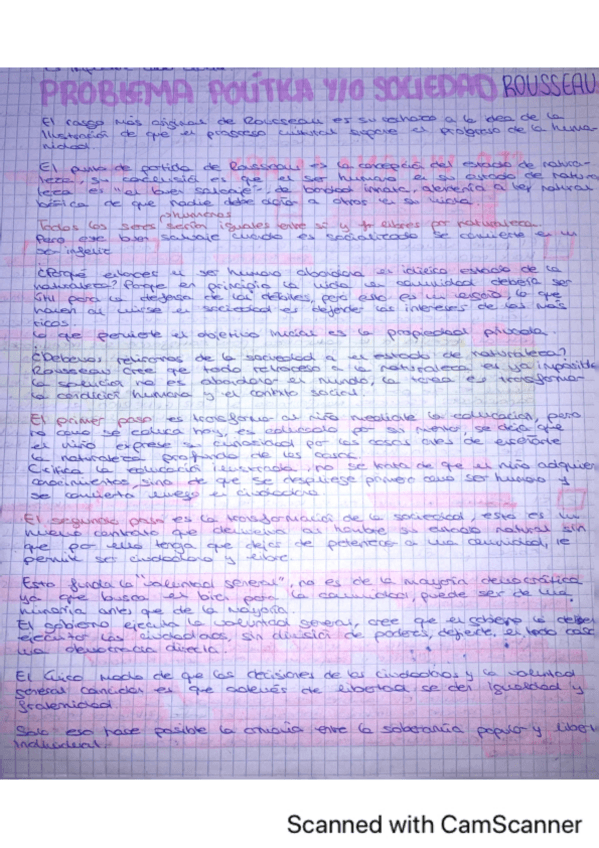 PROBLEMA POLÍTICA Y/O SOCIEDAD ROUSSEAU
El rasgo más original de Rousseau es su rechazo a la idea de la
Ilustración de que el progreso cultural supone el progreso de la huma-
nidad
El punto de partida de Rousseau es la concepción del estado de natura-
leza, su conclusión es que el ser humano en su estado de natura
leza es "el buen salvaje", de bondad innata, atendría a ley natural
básica de que nadie debe dañar a otros en su vida.
humanos
Todos los seres serían iguales entre sí y libres por naturaleza.
Pero ese buen salvaje cuando es socializado se convierte en un
ser infeliz
¿Porqué entonces el ser humano abandona el idílico estado de la
naturaleza? Porque en principio la vida en comunidad debería ser
útil para la defensa de los débiles, pero esto es un engaño, lo que
hacen al unirse en sociedad es defender los intereses de los más
ricos.
Lo que pervierte el objetivo inicial es la propiedad privada
¿Debemos retirarnos de la sociedad a el estado de naturaleza?
Rousseau cree que todo retroceso a la naturaleza es ya imposible
la solución no es abandonar el mundo, la tarea es transformar
la condición humana y el contrato social.
El primer paso es transformar al niño mediante la educación, pero
no como se educa hoy, es educarlo por sí mismo, se deja que
el niño exprese su curiosidad por las cosas antes de enseñarle
la naturaleza profunda de las cosas.
Critica la educación ilustrada, no se trata de que el niño adquiera
conocimientos, sino de que se despliegue primero como ser humano y
se convierta luego en ciudadano.
El segundo paso es la transformación de la sociedad, esta es un
nuevo contrato que devuelva al hombre su estado natural sin
que por ello tenga que dejar de pertenecer a una comunidad, le
permite ser ciudadano y libre.
Esto funda la "voluntad general", no es de la mayoría democrática
ya que busca el bien para la comunidad, puede ser de una
minoría antes que de la mayoría.
El gobierno ejecuta la voluntad general, cree que el gobierno lo deben
ejecutar los ciudadanos, sin división de poderes, defiende, en todo caso
una democracia directa.
El único modo de que las decisiones de los ciudadanos y la voluntad
general coincidan es que además de libertad, se den igualdad y
fraternidad
Solo eso hace posible la armonía entre la soberanía popular y liber
individual.
Scanned with CamScanner